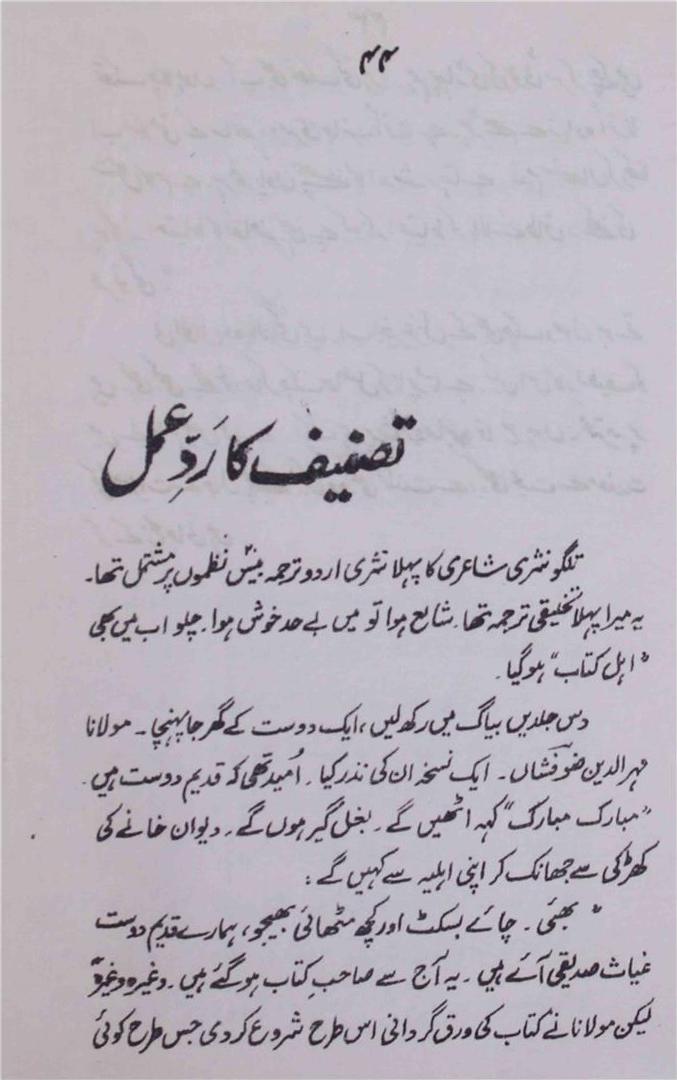 ۴۴
تصنیف کا رَدِّ عمل
تلگو نثری شاعری کا پہلا نثری اردو ترجمہ بیس نظموں پر مشتمل تھا۔
یہ میرا پہلا تخلیقی ترجمہ تھا۔ شایع ہوا تو میں بے حد خوش ہوا۔ چلو اب میں بھی
"اہل کتاب" ہوگیا۔
دس جلدیں بیاگ میں رکھ لیں، ایک دوست کے گھر جا پہنچا۔ مولانا
مہر الدین ضوفشاں۔ ایک نسخہ ان کی نذر کیا۔ اُمید تھی کہ قدیم دوست ہیں۔
"مبارک مبارک" کہہ اٹھیں گے۔ بغل گیر ہوں گے۔ دیوان خانے کی
کھڑکی سے جھانک کر اپنی اہلیہ سے کہیں گے:
"بھئی۔ چائے بسکٹ اور کچھ مٹھائی بھیجو، ہمارے قدیم دوست
غیاث صدیقی آئے ہیں۔ یہ آج سے صاحبِ کتاب ہوگئے ہیں۔ وغیرہ وغیرہ"
لیکن مولانا نے کتاب کی ورق گردانی اس طرح شروع کردی جس طرح کوئی